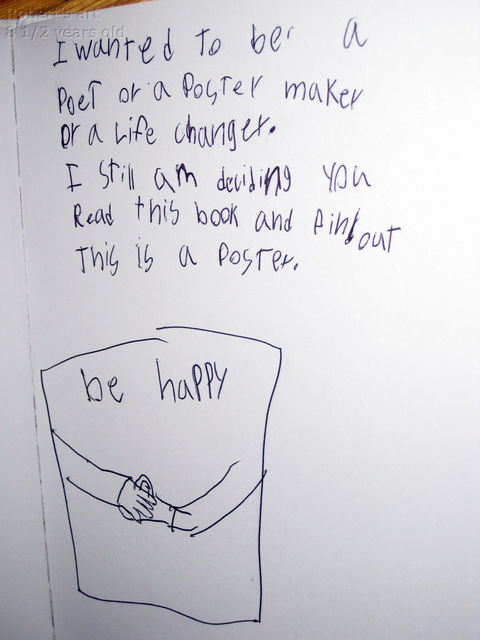 Robert's art
8 1/2 years old
I wanted to ber a
Poet or a Poster maker
or a Life changer.
I still am deciding you
Read this book and Find out
This is a Poster.
be happy